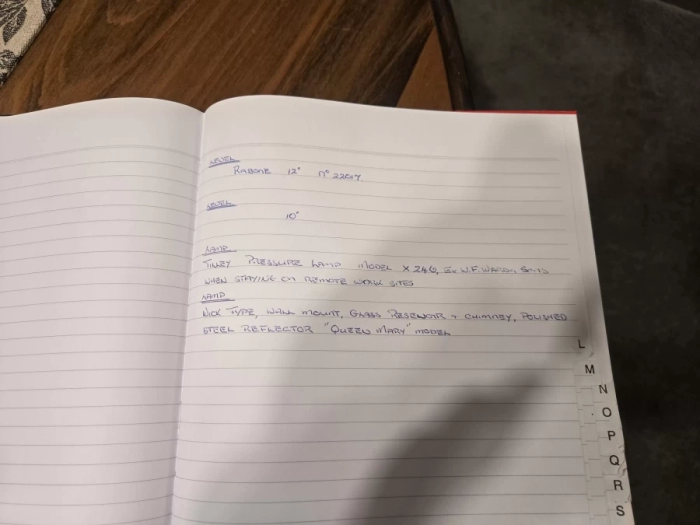 LEVEL
RABONE 12"
LEVEL
10"
LAMP
TILLEY PRESSURE LAMP MODEL X246, EX W.F.
WHEN STAYING ON REMOTE WORK SITES
LAMP
WICK TYPE, WALL MOUNT, GLASS RESERVOIR + CHIMNEY, POLISHED
STEEL REFLECTOR "QUEEN MARY" MODEL
L
M
N
O
P
Q
R
S